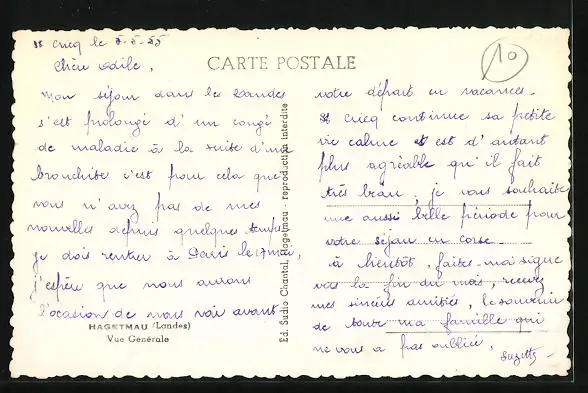 St Cricq le 5-5-55
CARTE POSTALE
10
Chère Odile,
Mon séjour dans les Landes
s'est prolongé d'un congé
de maladie à la suite d'une
bronchite c'est pour cela que
vous n'avez pas de mes
nouvelles depuis quelques temps
je dois rentrer à Paris le 17 mai,
j'espère que nous aurons
l'ocasion de nous voir avant
HAGETMAU (Landes)
Vue Générale
Ed. Sudio Chantal, Hagetmau - reproduction interdite
votre départ en vacances.
St Cricq continue sa petite
vie calme et est d'autant
plus agréable qu'il fait
très beau, je vous souhaite
une aussi belle période pour
votre séjour en Corse
à bientôt, faites-moi signe
vers la fin du mois, recevez
mes sincères amitiés, le souvenir
de toute ma famille qui
ne vous a pas oubliée,
Suzette